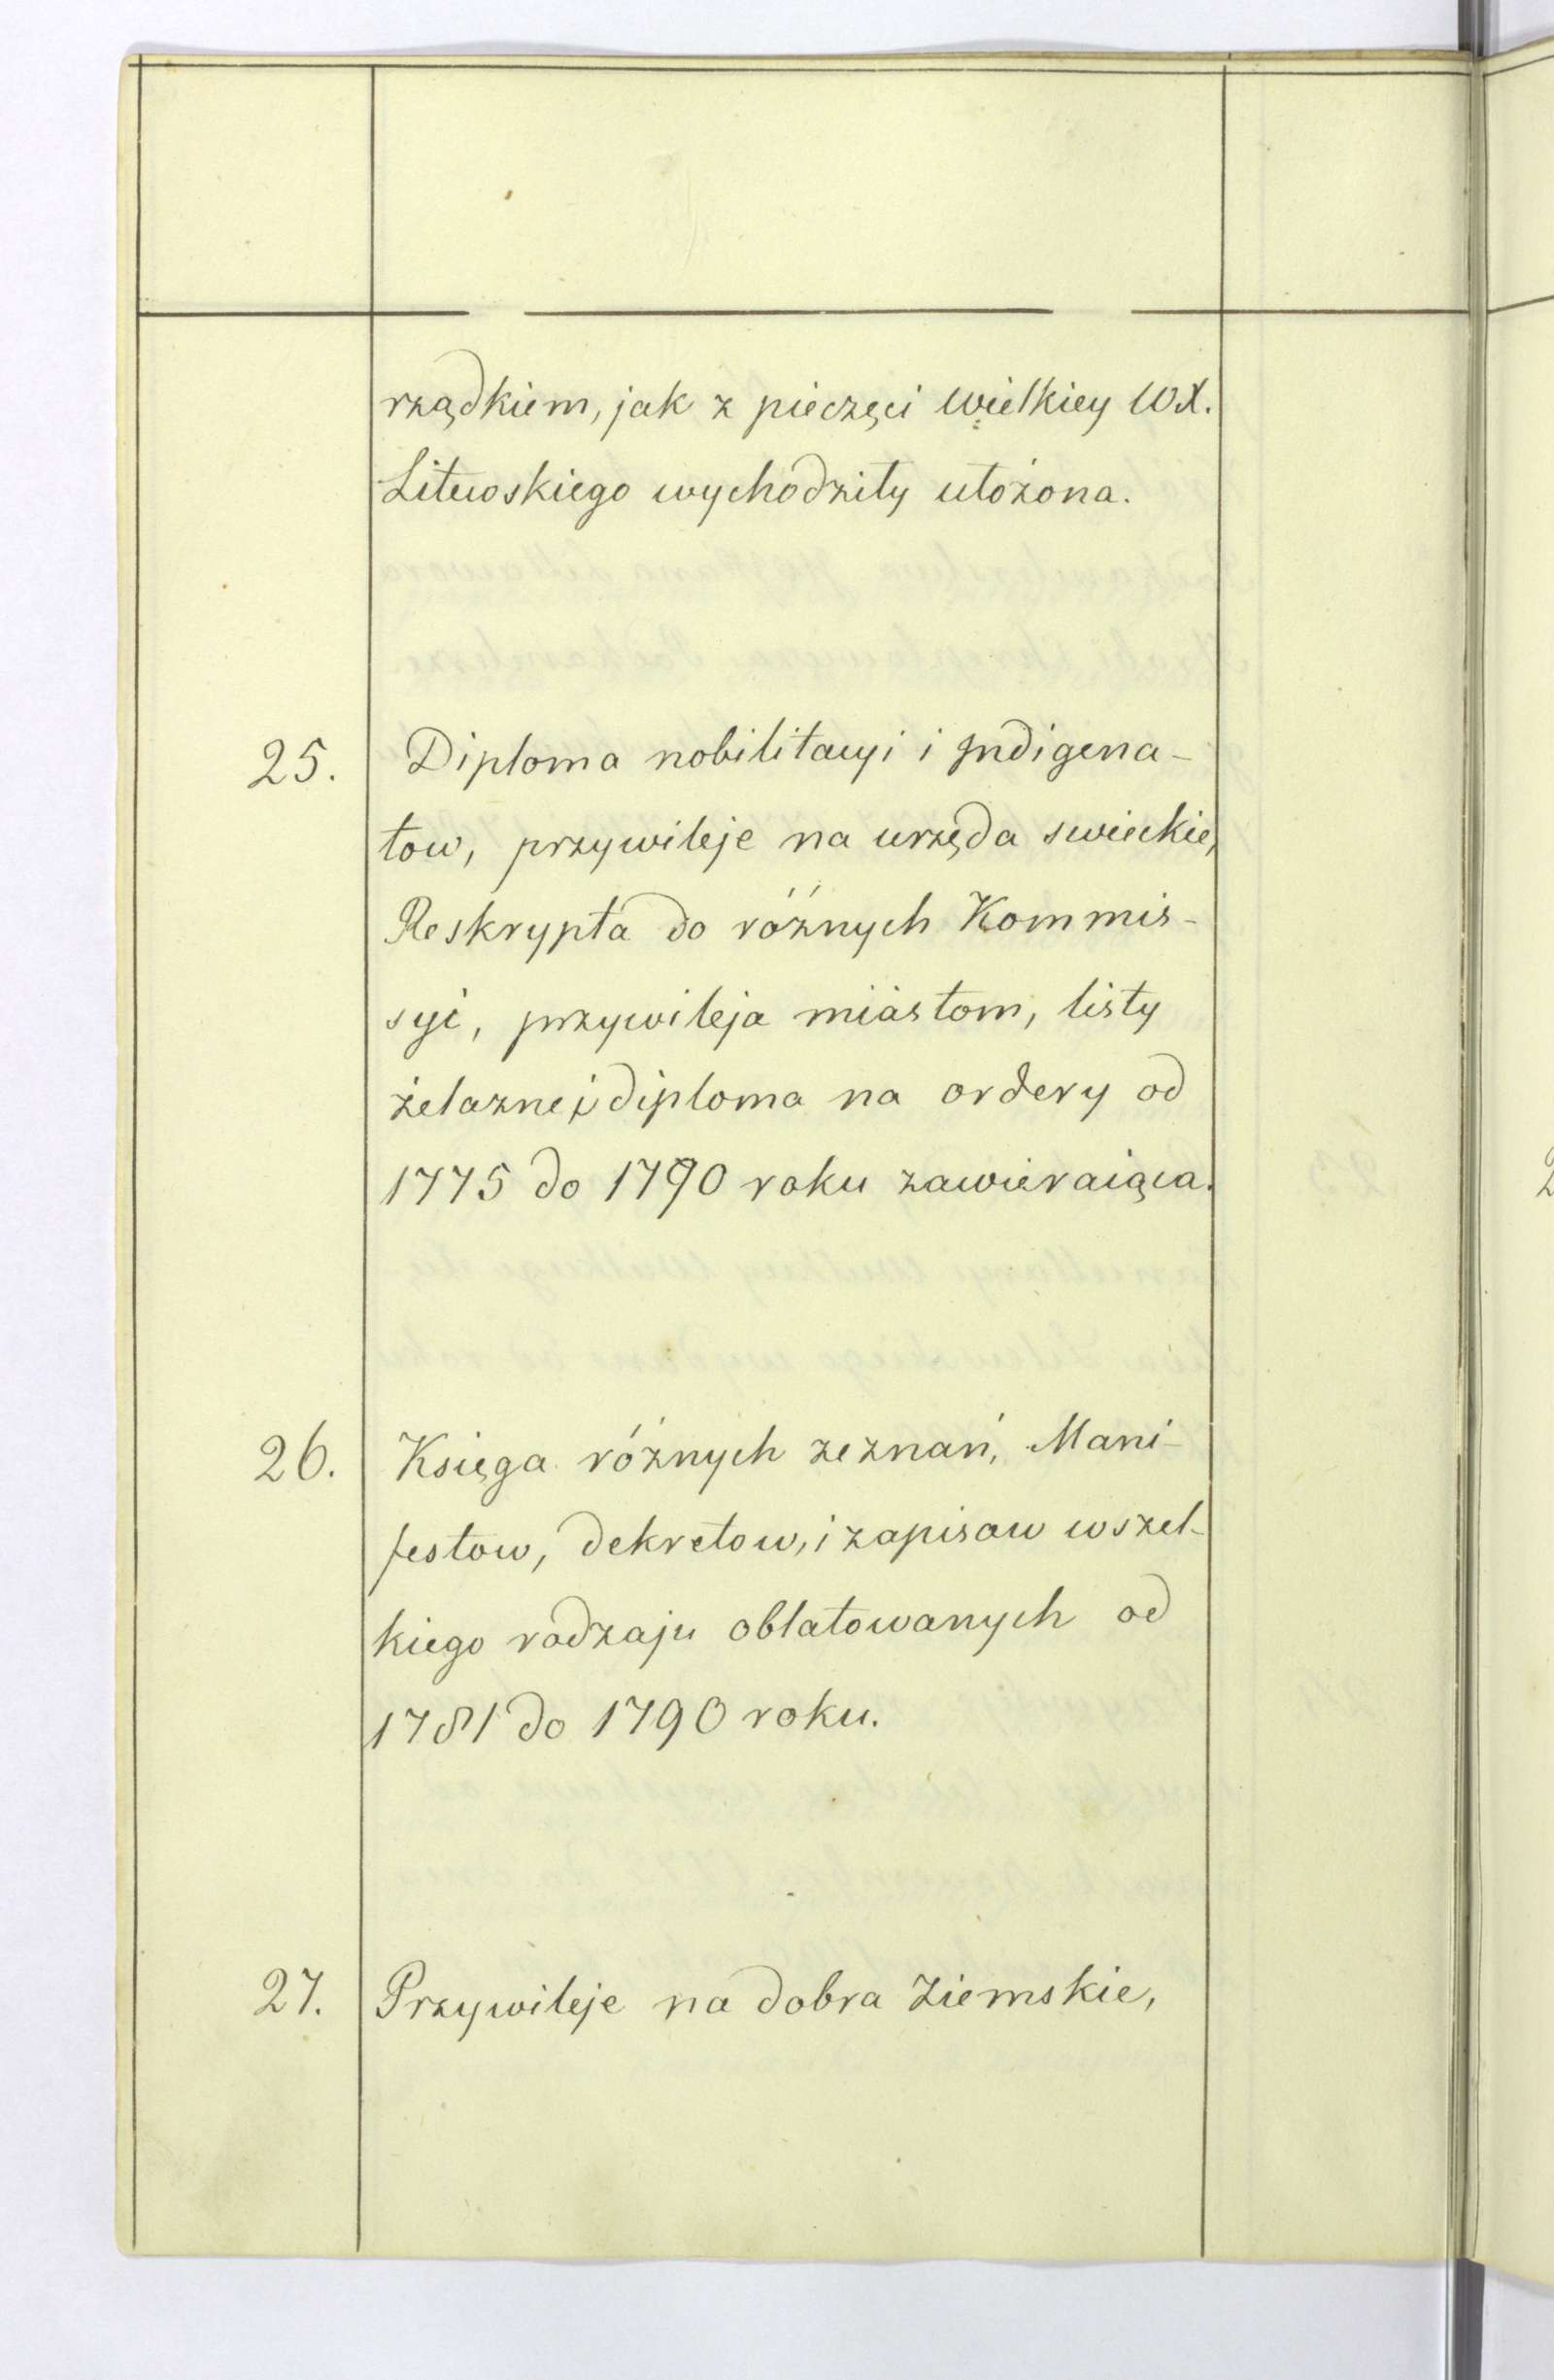 rządkiem, jak z pieczęci Wielkiey W X.
Litewskiego wychodziły ułożona.
25. Diploma nobilitacyi i Indigena-
tow, przywileje na urzęda swieckie,
Reskrypta do różnych Kommis-
syi, przywileja miastom, listy
żelazne i diploma na ordery od
1775 do 1790 roku zawieraiąca.
26. Księga różnych zeznań, Mani-
festow, dekretow, i zapisow wszel-
kiego rodzaju oblatowanych od
1781 do 1790 roku.
27. Przywileje na dobra Ziemskie,